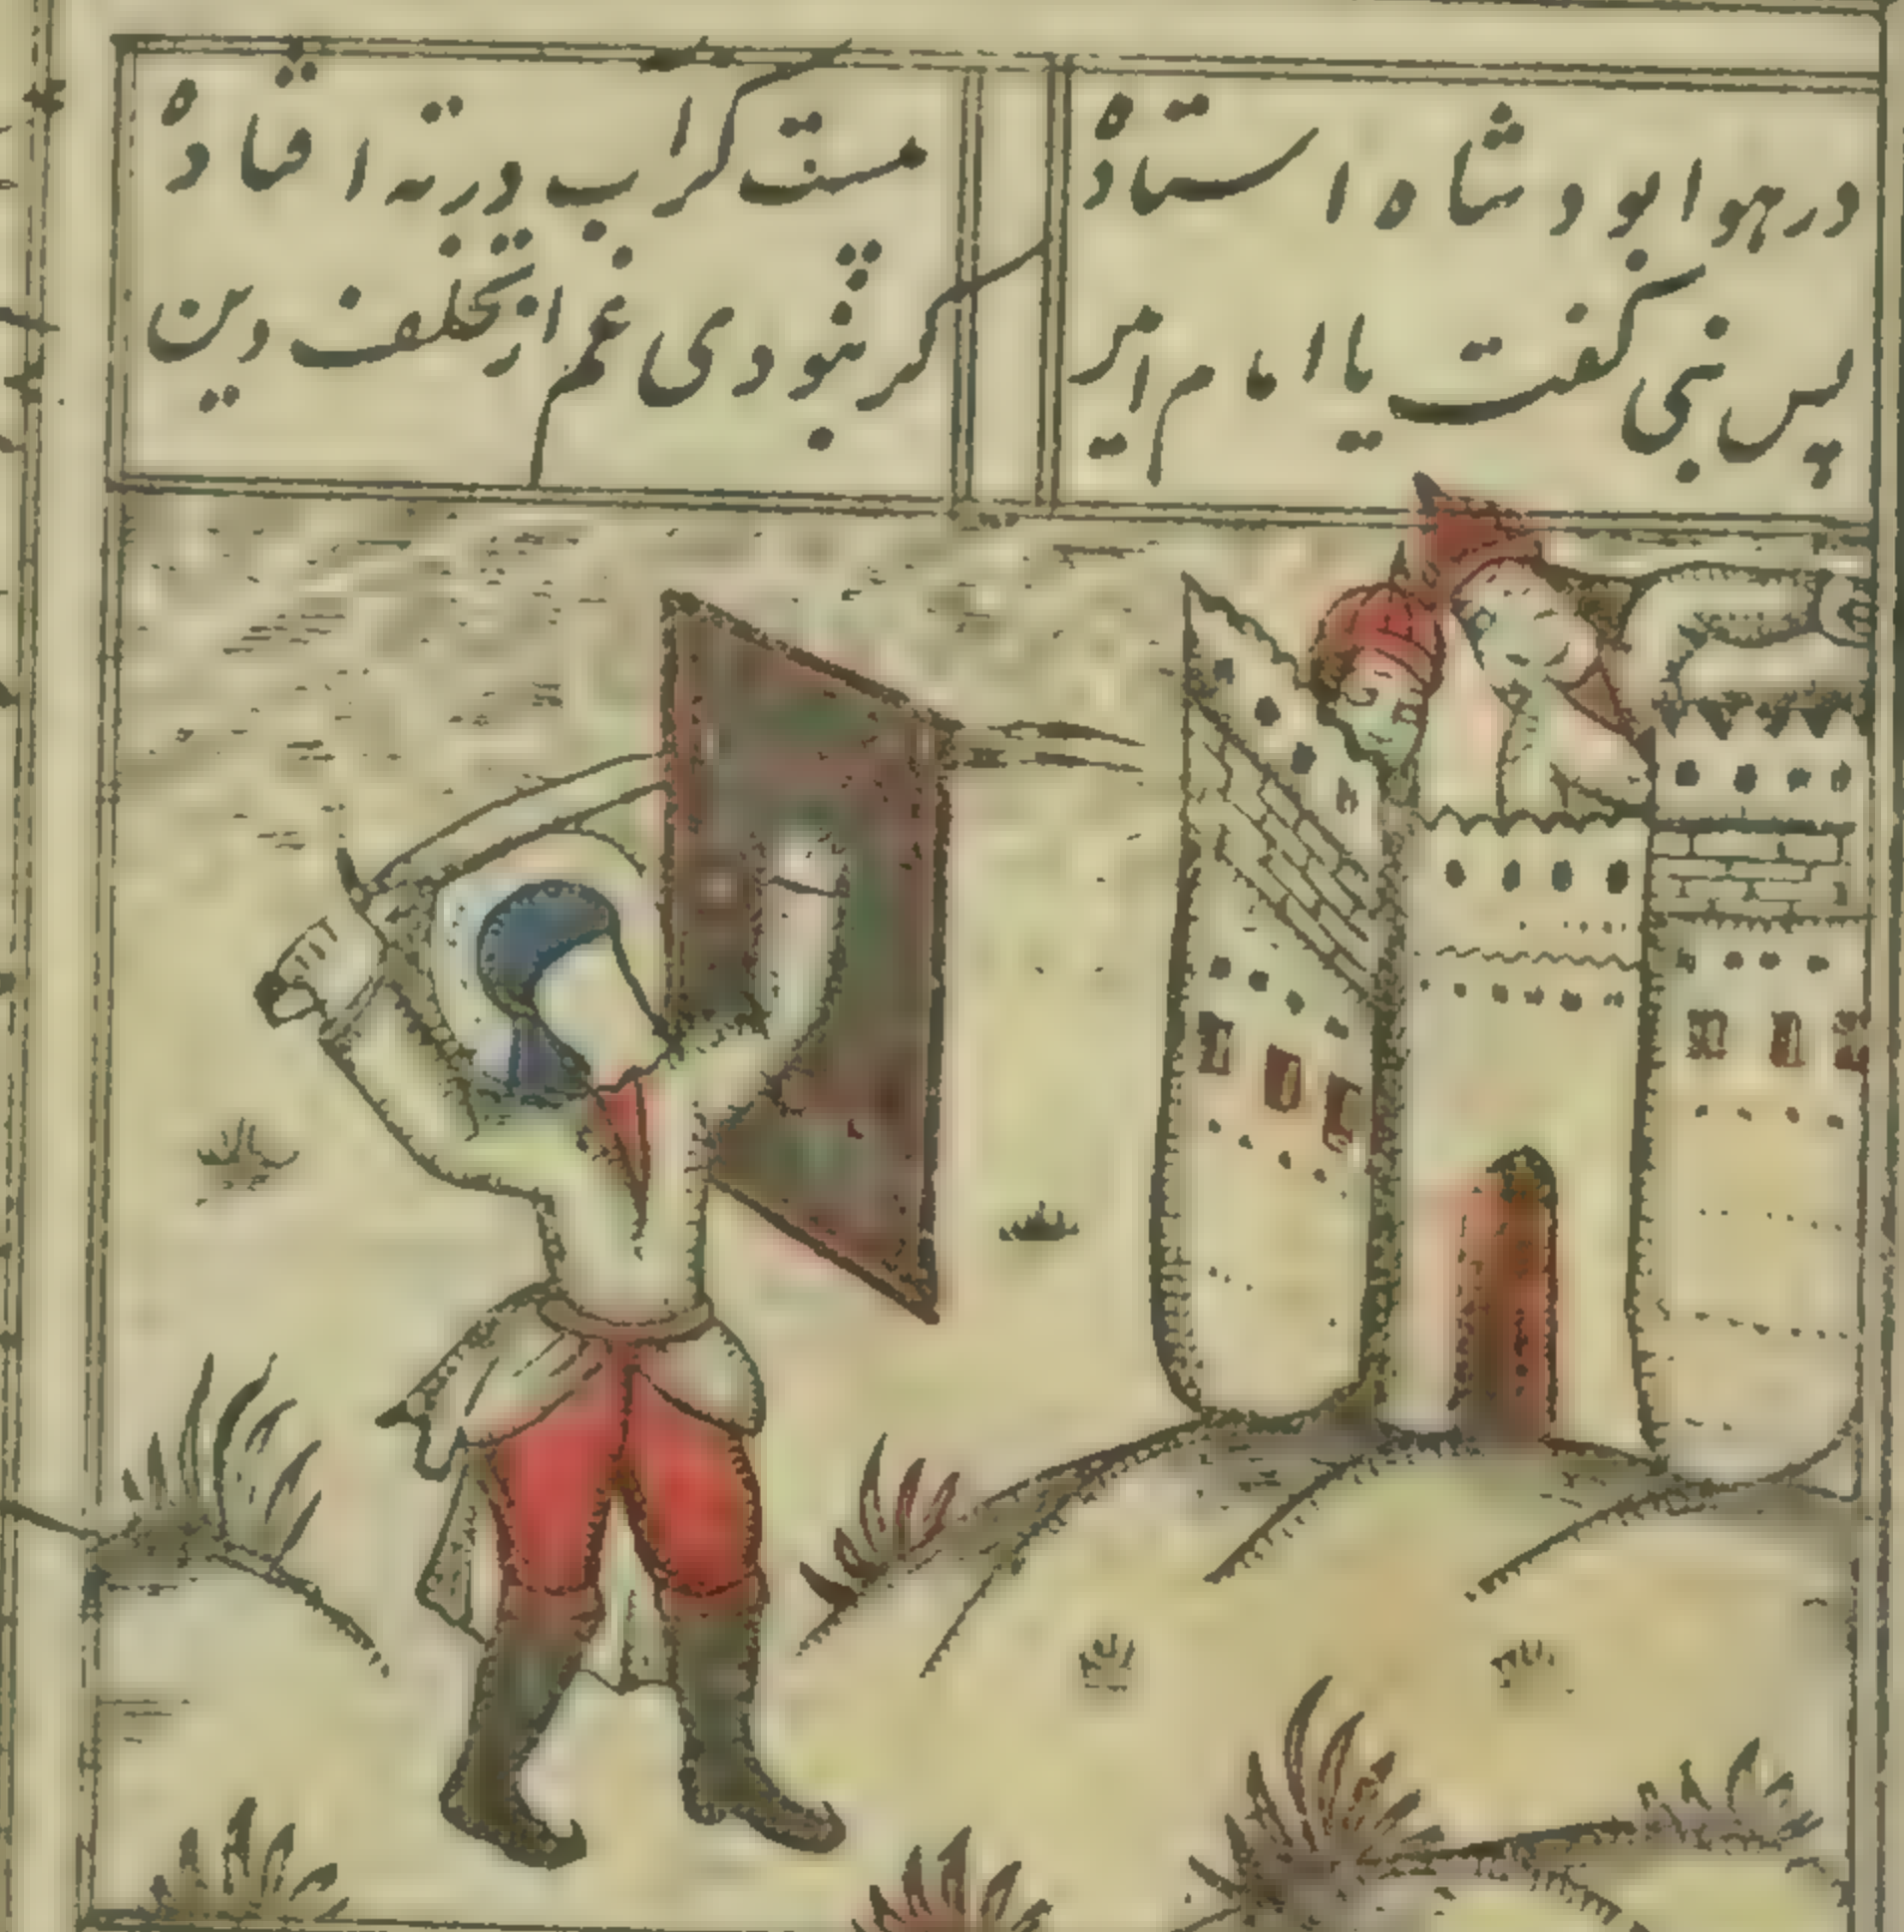 در هوا بود شاه استاده
در ته افتاده
پس نبی گفت یا امام
گر نبودی غم از تخلف دین